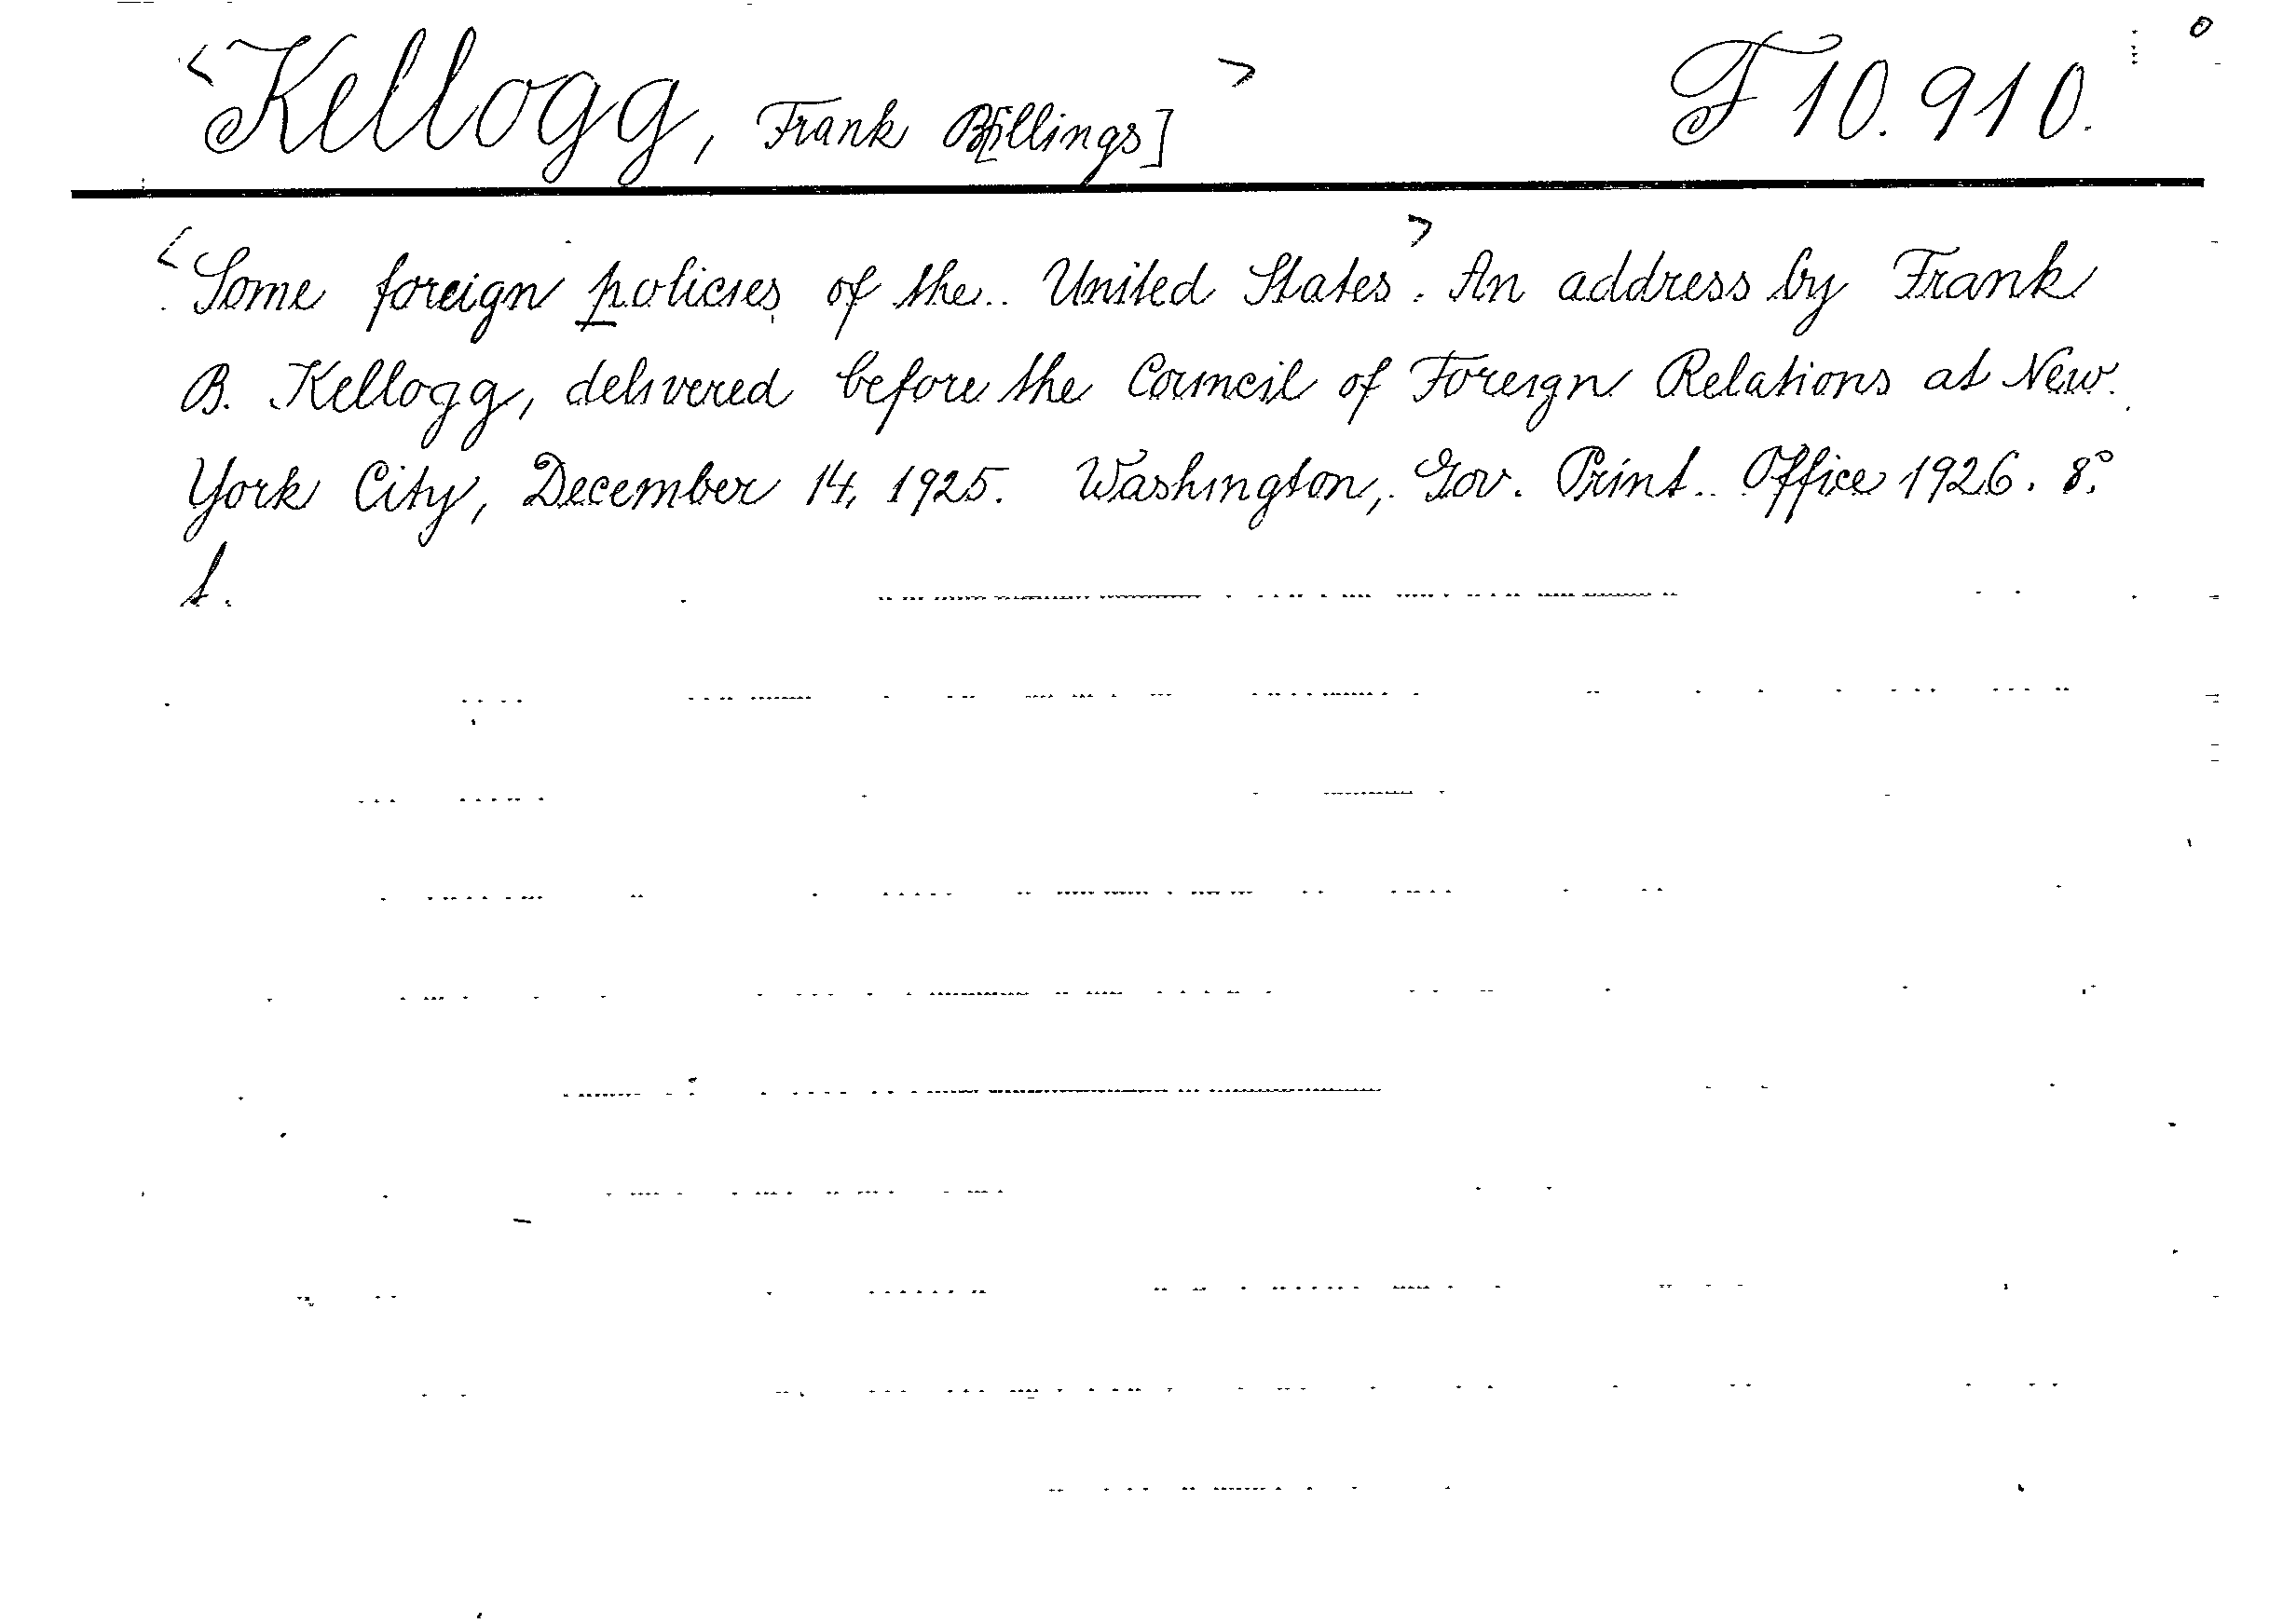 <Kellogg, Frank B[illings]> F 10.910.
<Some foreign policies of the United States>. An address by Frank
B. Kellogg, delivered before the Council of Foreign Relations at New
York City, December 14, 1925. Washington, Gov. Print. Office 1926. 8°.